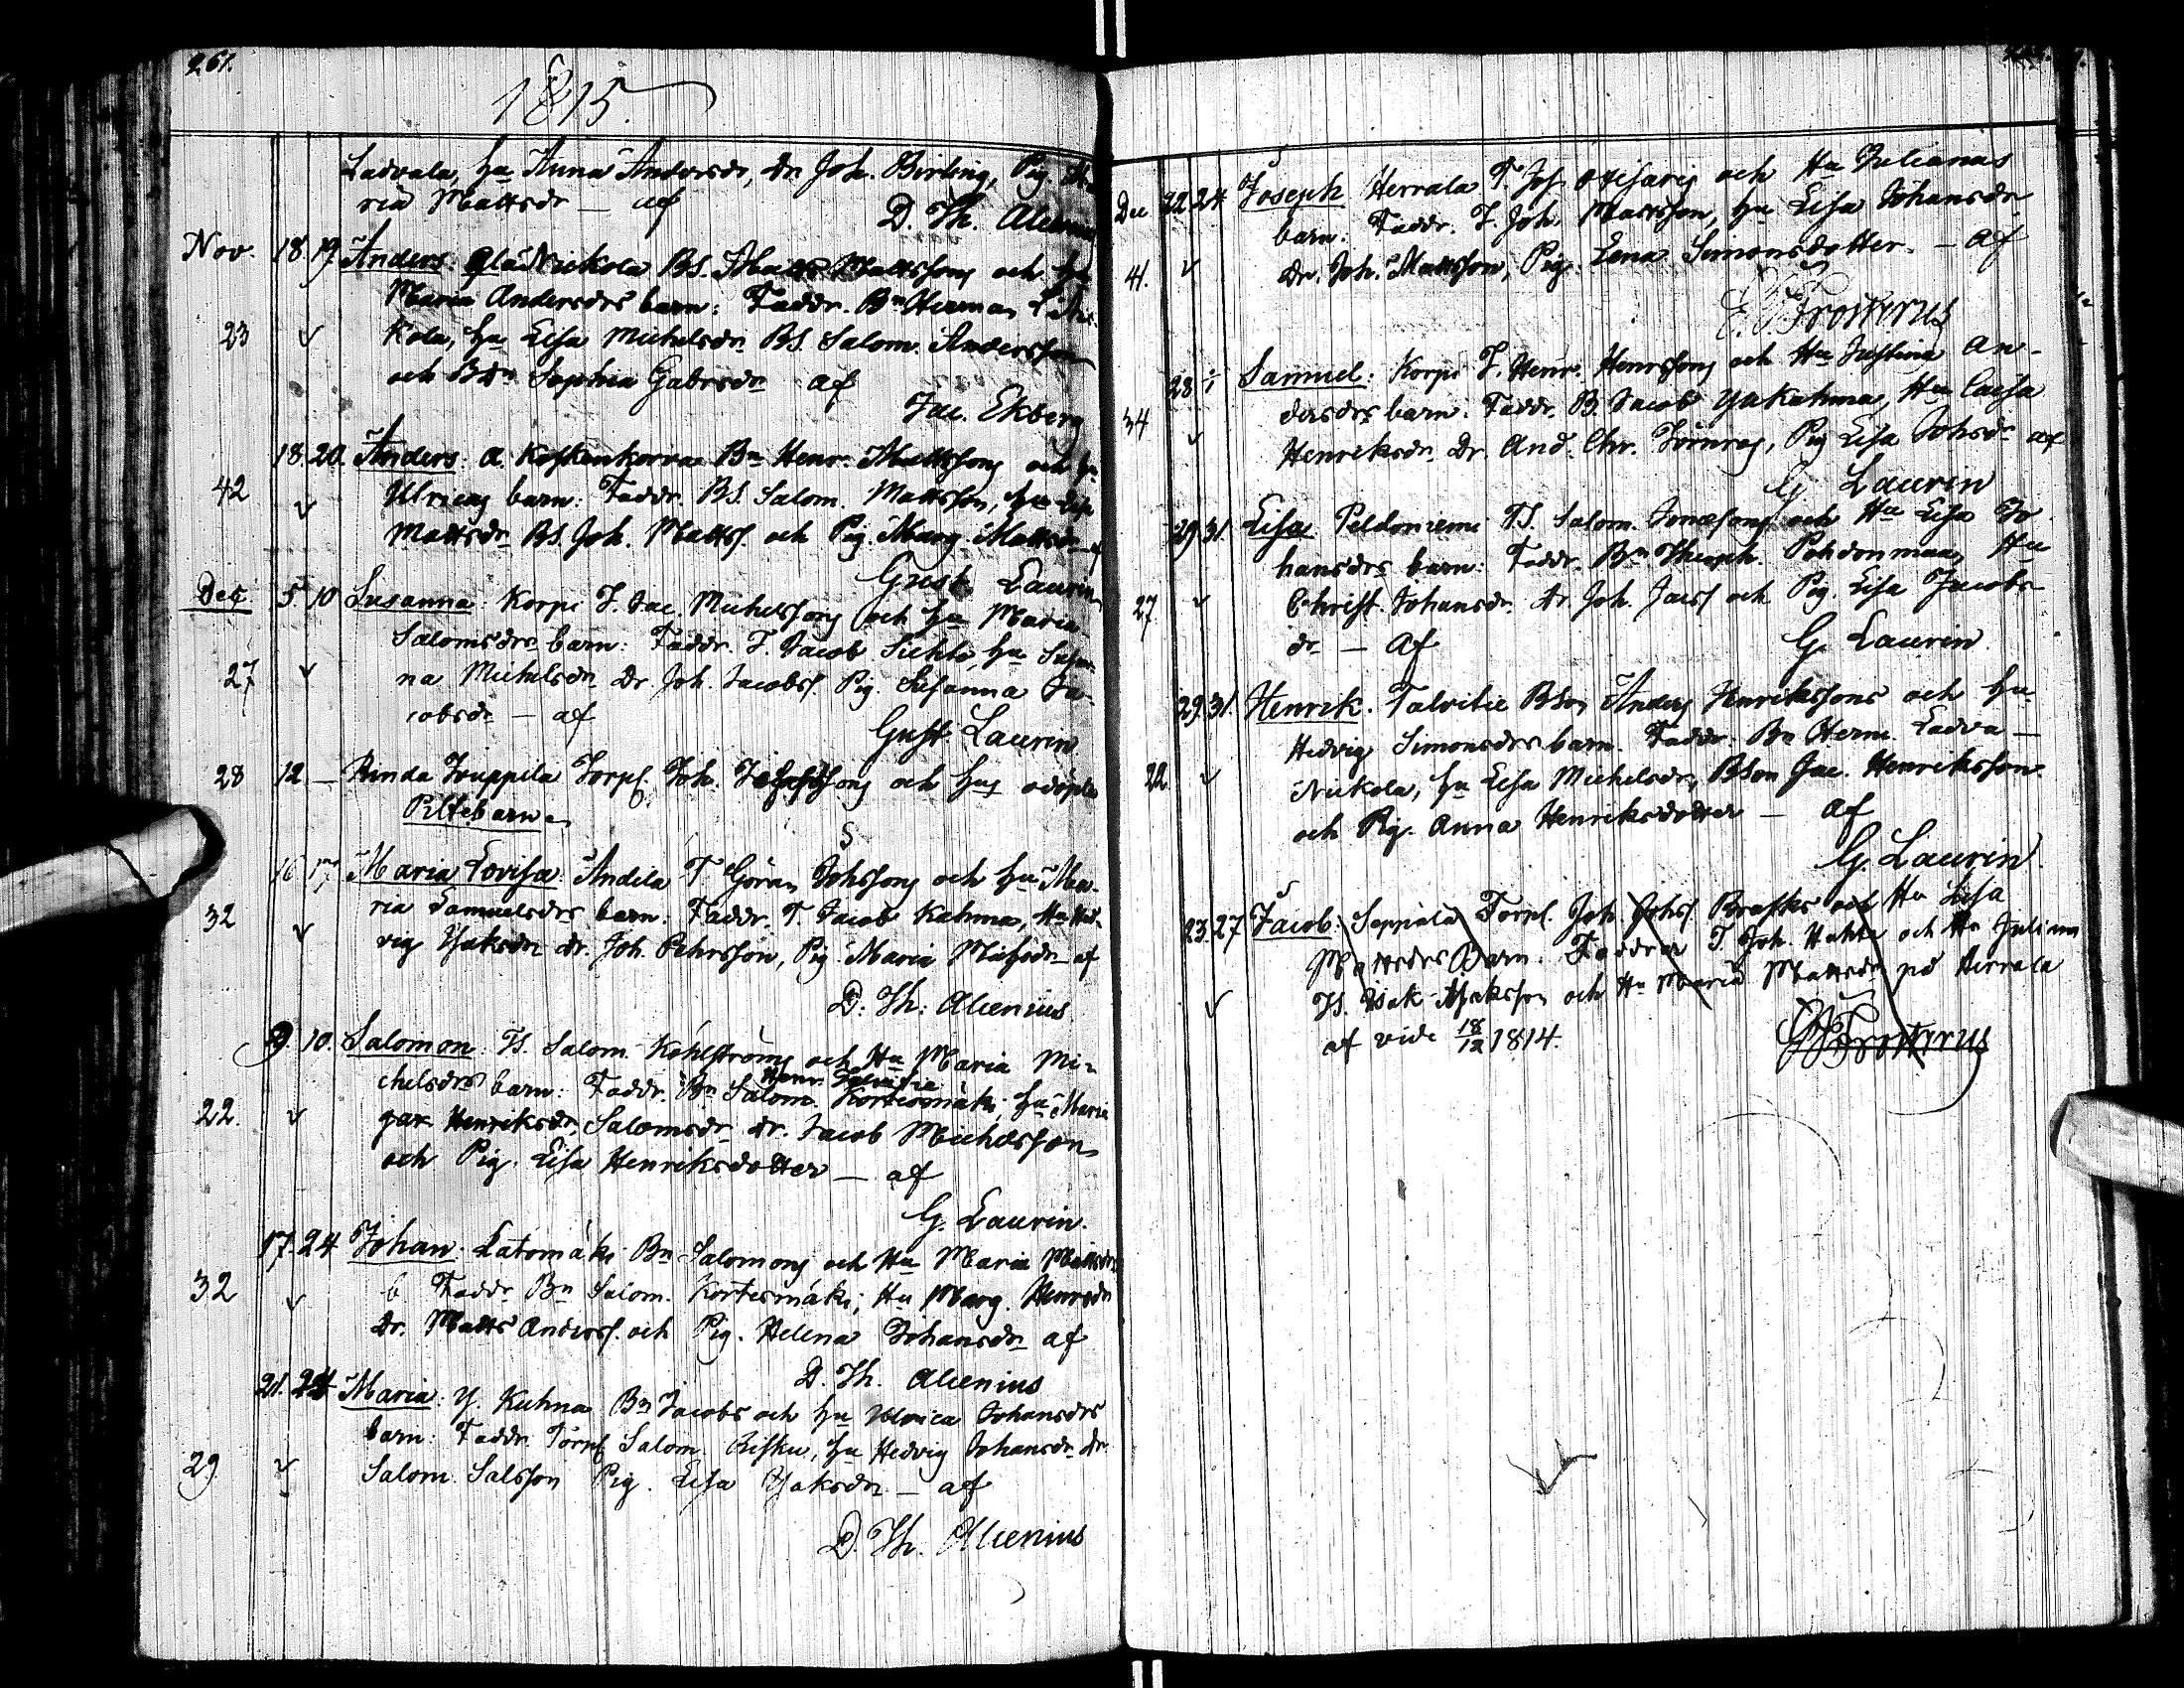 261.
1815.
Ladvala, hu Anna Andersdr, Dr Joh. Birling, Pig. Ma-
ria Mattsdr — af
D. Th. Alcenius
Nov. 18. 19. Anders. Nickola BS. Matts Mattssons och hu
Maria Andersdrs barn: Faddr. Bn Herman
23 kola, hu Lisa Michelsdr BS. Salom. Andersson
och Sophia Gabrsdr af
Jac. Ekberg
18. 20. Anders. a. Koskenkorva Bn Henr. Mattssons och hu
42 Ulricas barn: Faddr. BS. Salom. Mattsson, hu Lisa
Mattsdr BS. Joh. Mattss. och Pig. Marg. Mattsdr af
Gust Laurin
Dec 5. 10 Susanna: Korpi T. Jac. Michelssons och hu Maria
Salomsdrs barn: Faddr. T. Jacob Sichto, hu Susan-
27 na Michelsdr Dr Joh. Jacobss. Pig. Susanna Ja-
cobsdr — af
Gust. Laurin
28 12 — Rinda Jouppila Torp. Joh. och hus odöpta
Piltebarn.
16 17 Maria Lovisa: Andila T. Göran Johssons och hu Ma-
32 ria Samuelsdrs barn. Faddr. T. Jacob Kahma, Hu Hed-
vig Isaksdr Dr. Joh. Pehrsson, Pig. Maria Michsdr af
D. Th. Alcenius
9. 10. Salomon: TS. Salom. Kohlströms och Hu Maria Mi-
Henr. Talvitie
chelsdrs barn: Faddr. Bn Salom. Kortesmäki, hu Maria
22. Henriksdr, Salomsdr Dr. Jacob Michelsson
och Pig. Lisa Henriksdotter — af
G. Laurin.
17. 24 Johan. Latomäki Bn Salomons och Hu Maria Mattsdrs
32 b Faddr Bn Salom. Kortesmäki, Hu Marg. Henrsdr
Dr. Matts Anderss. och Pig. Helena Johansdr af
D. Th Alcenius
21. 24 Maria: y. Kuhna Bn Jacobs och hu Ulrica Johansdrs
barn: Faddr. Torp Salom. Risku, hu Hedvig Johansdr Dr
29 Salom. Salsson Pig. Lisa Isaksdr — af
D. Th. Alcenius
Dec 22 24 Joseph Herrala T. Jos. och Hu Julianas
barn: Faddr. T. Joh. Mattsson, hu Lisa Johansdr
41. Dr. Joh. Mattsson, Pig. Lena Simonsdotter. — af
Frosterus
28 Samuel. Korpi T. Henr. Henrssons och Hu Justina An-
34 dersdrs barn. Faddr. B. Jacob Yakahma, Hu Caisa
Henriksdr Dr. And. Chr. Törnroos, Pig Lisa Johsdr af
G. Laurin
29. 31. Lisa Peldoniemi TS. Salom. Jonæsons och Hu Lisa Jo
hansdrs barn: Faddr. Bn Pohdonmaa, Hu
27 Christ. Johansdr. Dr. Joh. Jacss och Pig. Lisa Jacobs
dr — af
G. Laurin
29. 31. Henrik. Talvitie BSon Anders Henrikssons och hu
Hedvig Simonsdrs barn. Faddr. Bn Herm. Ladva —
22 Nickola, hu Lisa Michelsdr, BSon Jac. Henriksson
och Pig. Anna Henriksdotter — af
G. Laurin
23. 27 Jacob. Seppälä Torp. Joh. Johss. Brasks och Hu Lisa
Mattsdrs Barn. Faddrar T Joh. Hahto och Hu Juliana
TS. Isak Isaksson och Hu Maria Mattsdr på Herrala
af vide 18/12 1814.
Frosterus